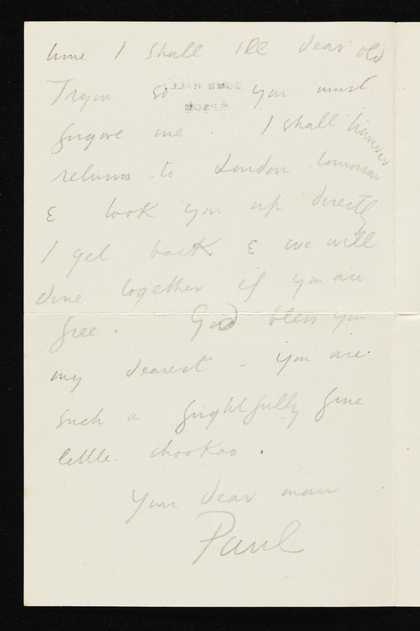 time I shall see dear old
Tryon so you must
forgive me. I shall
return to London tomorrow
& look you up directly
I get back & we will
dine together if you are
free. God bless you
my dearest - you are
such a frightfully fine
little chookas.
Your dear man
Paul